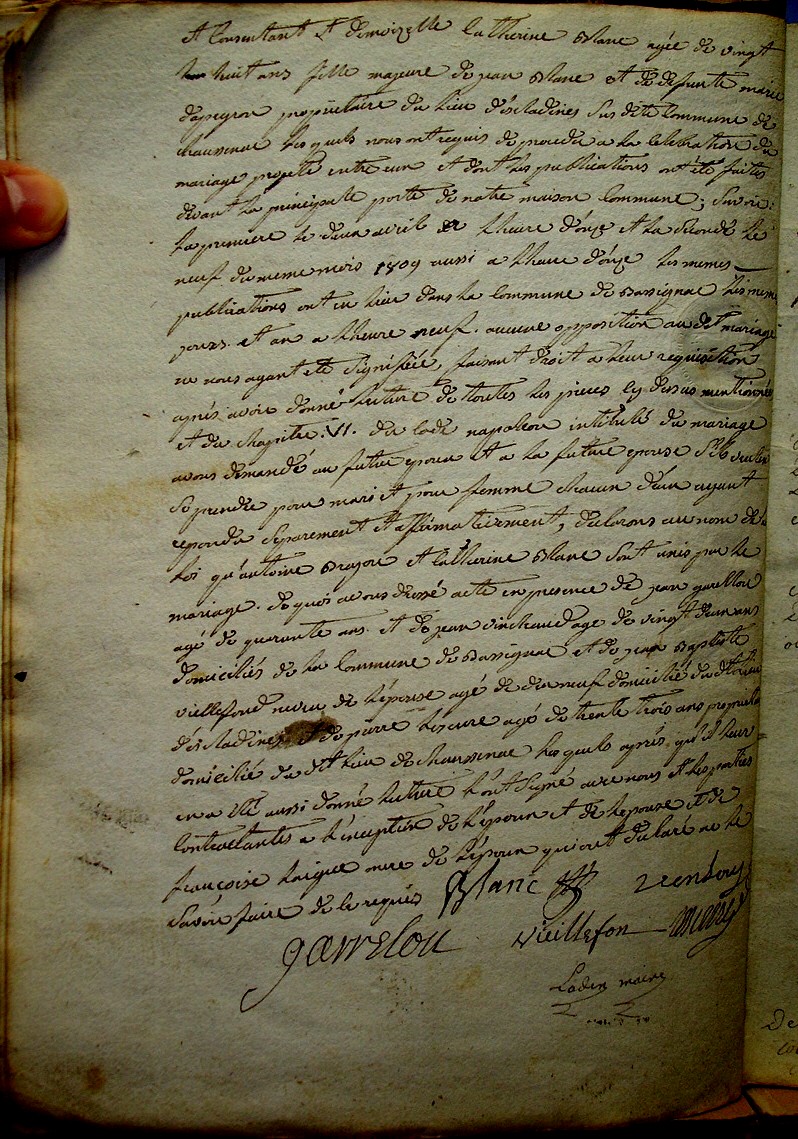 et Consentant et demoizelle Catherine Blanc agée de vingt
huit ans fille majeure de jean Blanc et de defunte marie
dapeyron propriétaire du lieu d'éscladines sus dite Commune de
chaussenac lesquels nous ont requis de proceder a la Celebration du
mariage projeté entre eux et dont les publications ont été faites
devant la principale porte de notre maison Commune; Savoir:
la premiere le deux avril a l'heure d'onze et la seconde le
neuf du meme mois 1809 aussi a l'heure d'onze les memes
publications ont eu lieu dans la Commune de Bassignac les meme
jours et an a l'heure neuf. aucune opposition au dit mariage
ne nous ayant été signifiée, faisant droit a leur requisition
aprés avoir donné lecture de toutes les pieces cy dessus mentionnée
et du chapitre VI. du Code napoleon intitulé du mariage
avons demandé au futur epoux et a la future epouse S'ils veulent
se prendre pour mari et pour femme chacun d'eux ayant
repondu Separement et affirmativement, declarons au nom de la
loi qu'antoine et Catherine Blanc sont unis par le
mariage. de quoi avons dressé acte en presence de jean garrelou
agé de quarante ans. et de jean agé de vingt deux ans
domiciliés de la Commune de Bassignac et de jean Baptiste
vieillefond neveu de l'épouse agé de dix neuf domicilié du dit lieu
d'éscladines et de pierre agé de trente trois ans
domicilié du dit lieu de chaussenac lesquels aprés qu'il leur
en a été aussi donné lecture l'ont signé avec nous et les parties
Contractantes a l'exception de l'époux et de l'epouze et de
françoise mere de l'époux qui ont declaré ne le
Savoir faire de ce requis Blanc
garrelou vieillefon
maire